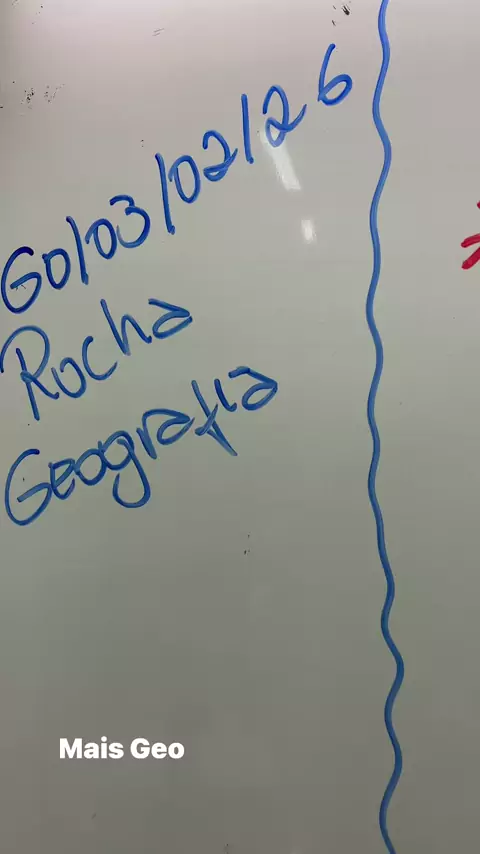 Go/03/02/26
Rocha
Geografia
Mais Geo